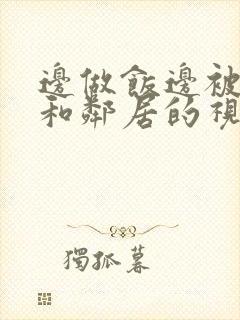 邊做飯邊被
和鄰居的視
獨孤暮